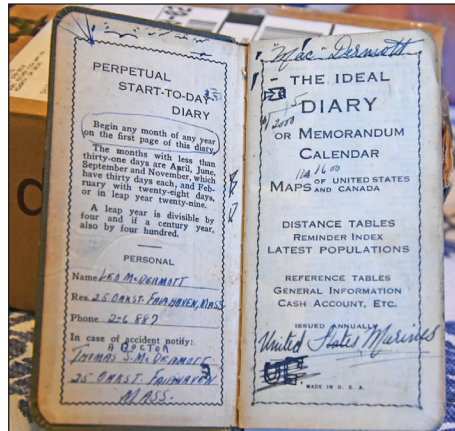 PERPETUAL
START-TO-DAY
DIARY
Begin any month of any year
on the first page of this diary.
The months with less than
thirty-one days are April, June,
September and November, which
have thirty days each, and Feb-
ruary with twenty-eight days,
or in leap year twenty-nine.
A leap year is divisible by
four and if a century year,
also by four hundred.
PERSONAL
Name LEO McDERMOTT
Res. 25 OAK ST. FAIRHAVEN, MASS
Phone 2-6887
In case of accident notify:
A DOCTOR
THOMAS S. McDERMOTT
25 OAK ST. FAIRHAVEN
MASS.
"Mac" Dermott
THE IDEAL
DIARY
2000
OR MEMORANDUM
CALENDAR
1600
MAPS OF UNITED STATES
AND CANADA
DISTANCE TABLES
REMINDER INDEX
LATEST POPULATIONS
REFERENCE TABLES
GENERAL INFORMATION
CASH ACCOUNT, ETC.
ISSUED ANNUALLY
United States Marines
MADE IN U. S. A.